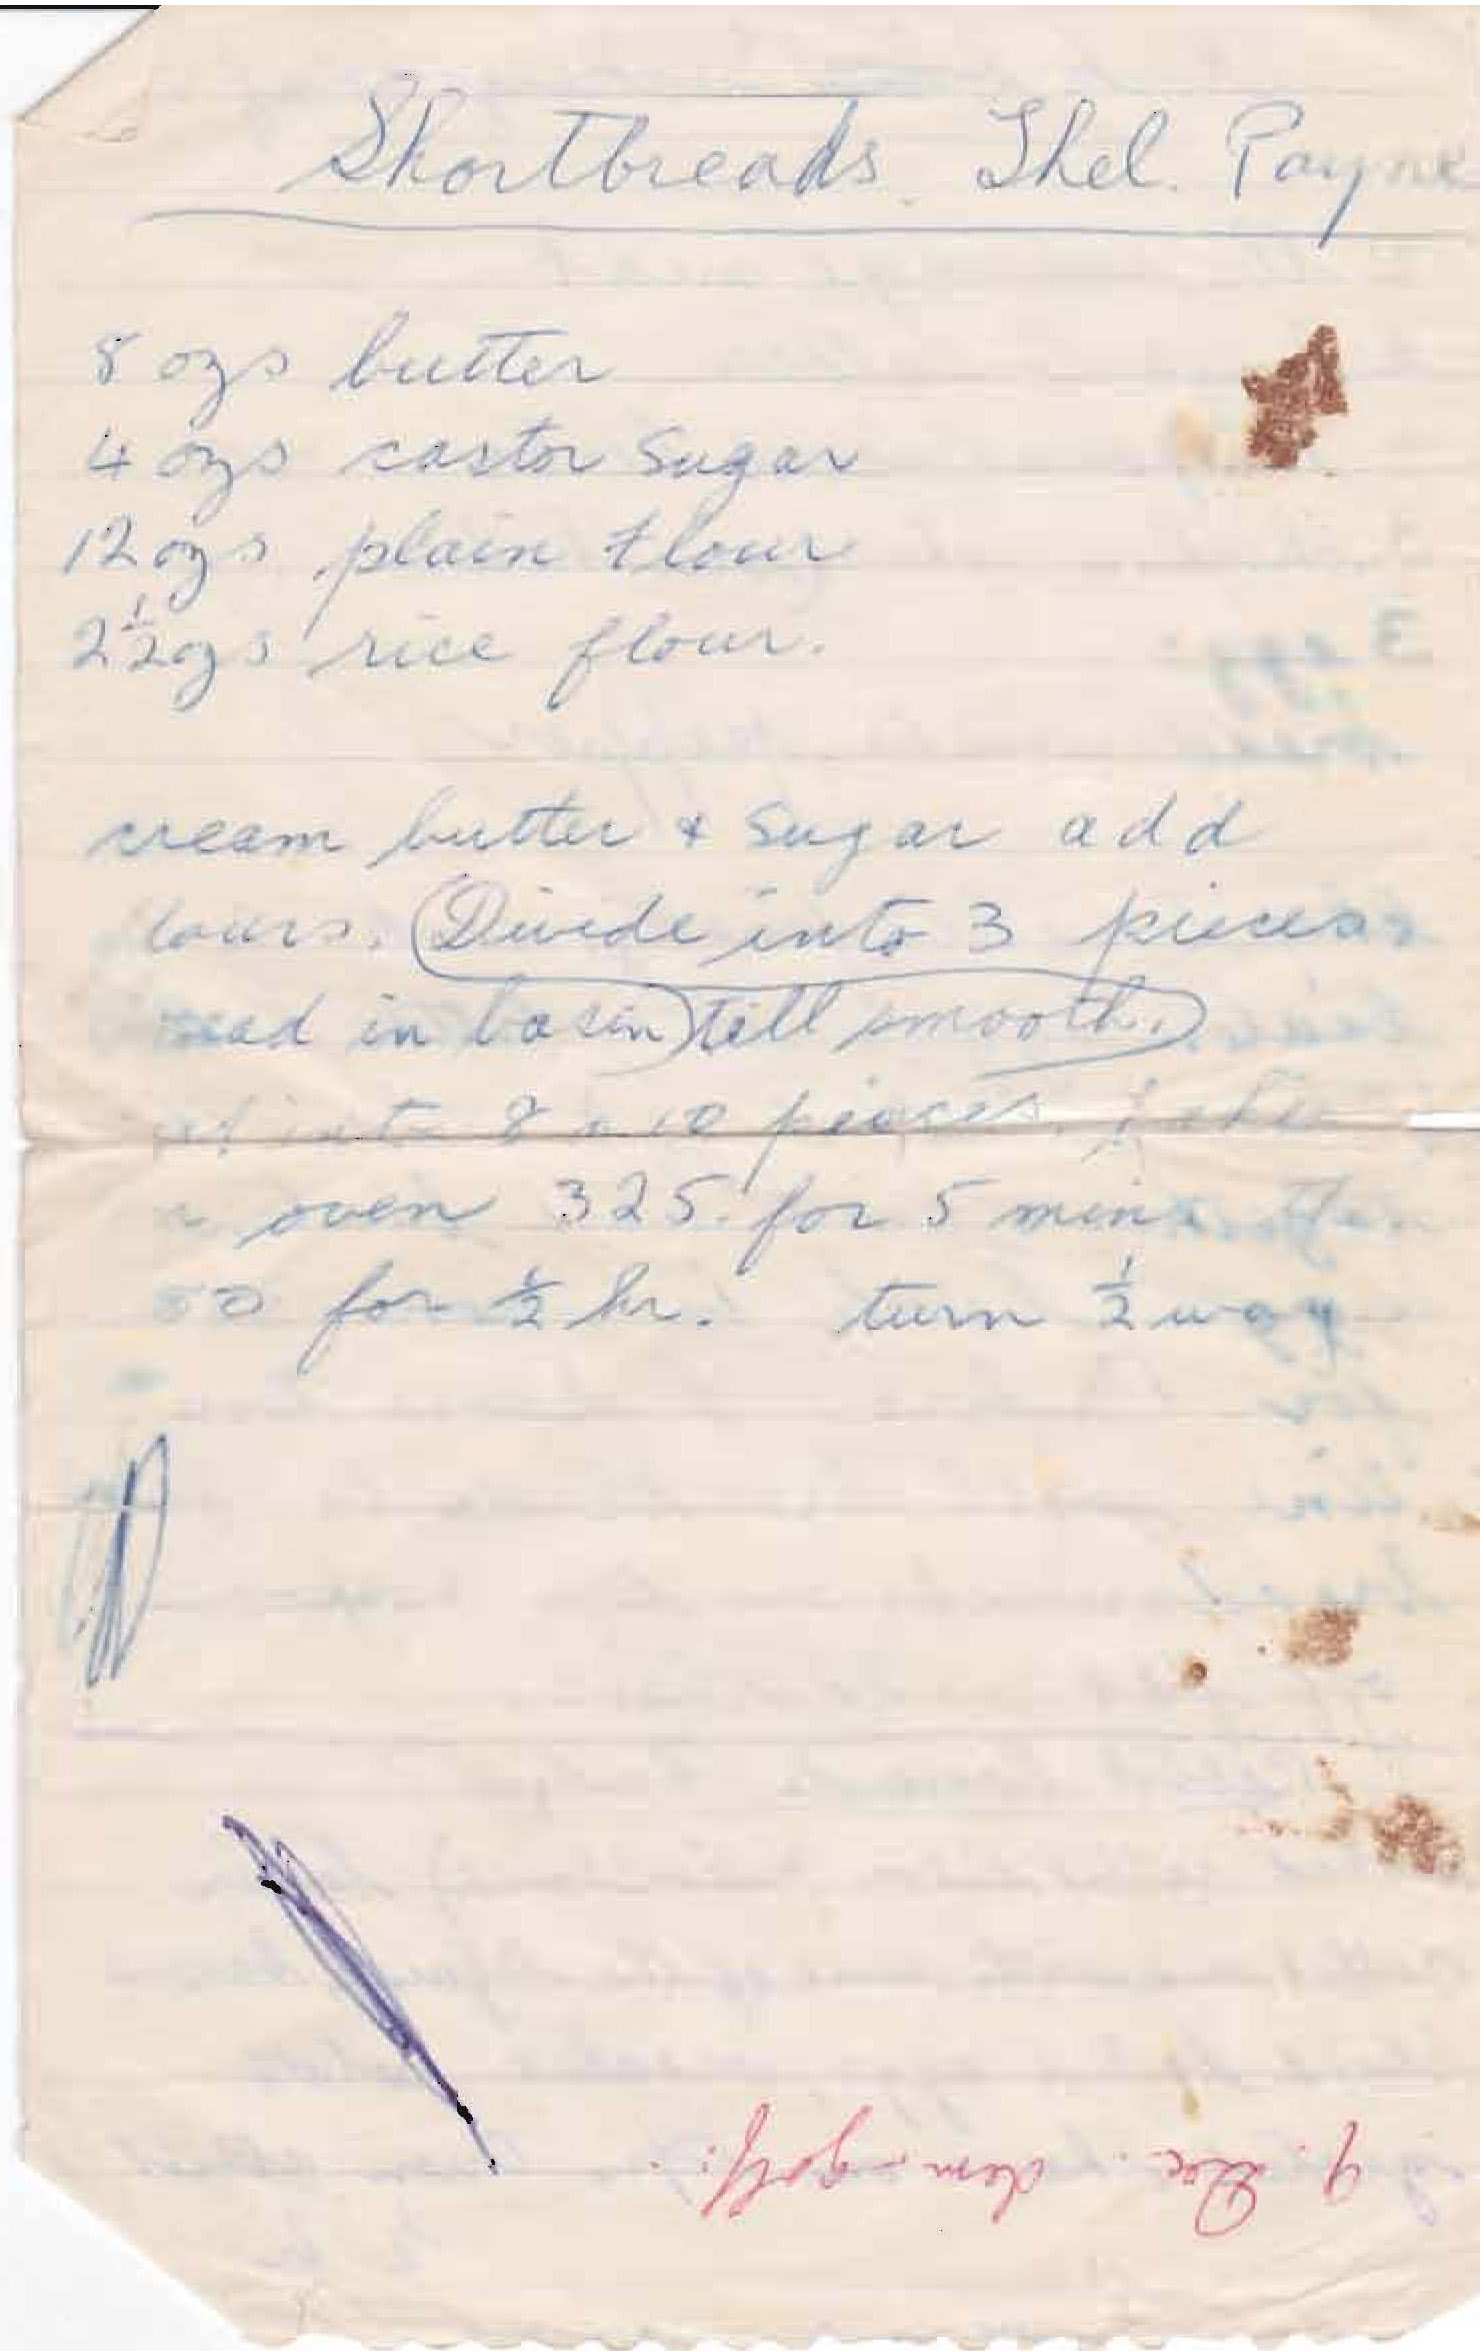 Shortbreads. Thel. Payne
8 ozs butter
4 ozs castor Sugar
12 ozs plain flour
2½ozs rice flour.
cream butter & Sugar add
lours. (Divide into 3 pieces
ead in basin) till smooth.
into 8 10 pieces.
oven 325 for 5 mins
50 for ½ hr. turn ½ way
9. Dec. dem. golf.